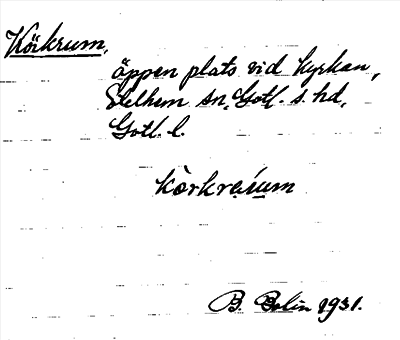 Körkrum,
öppen plats vid kyrkan,
Etelhem sn, Gotl. s. hd,
Gotl. l.
B. Bolin 1931.